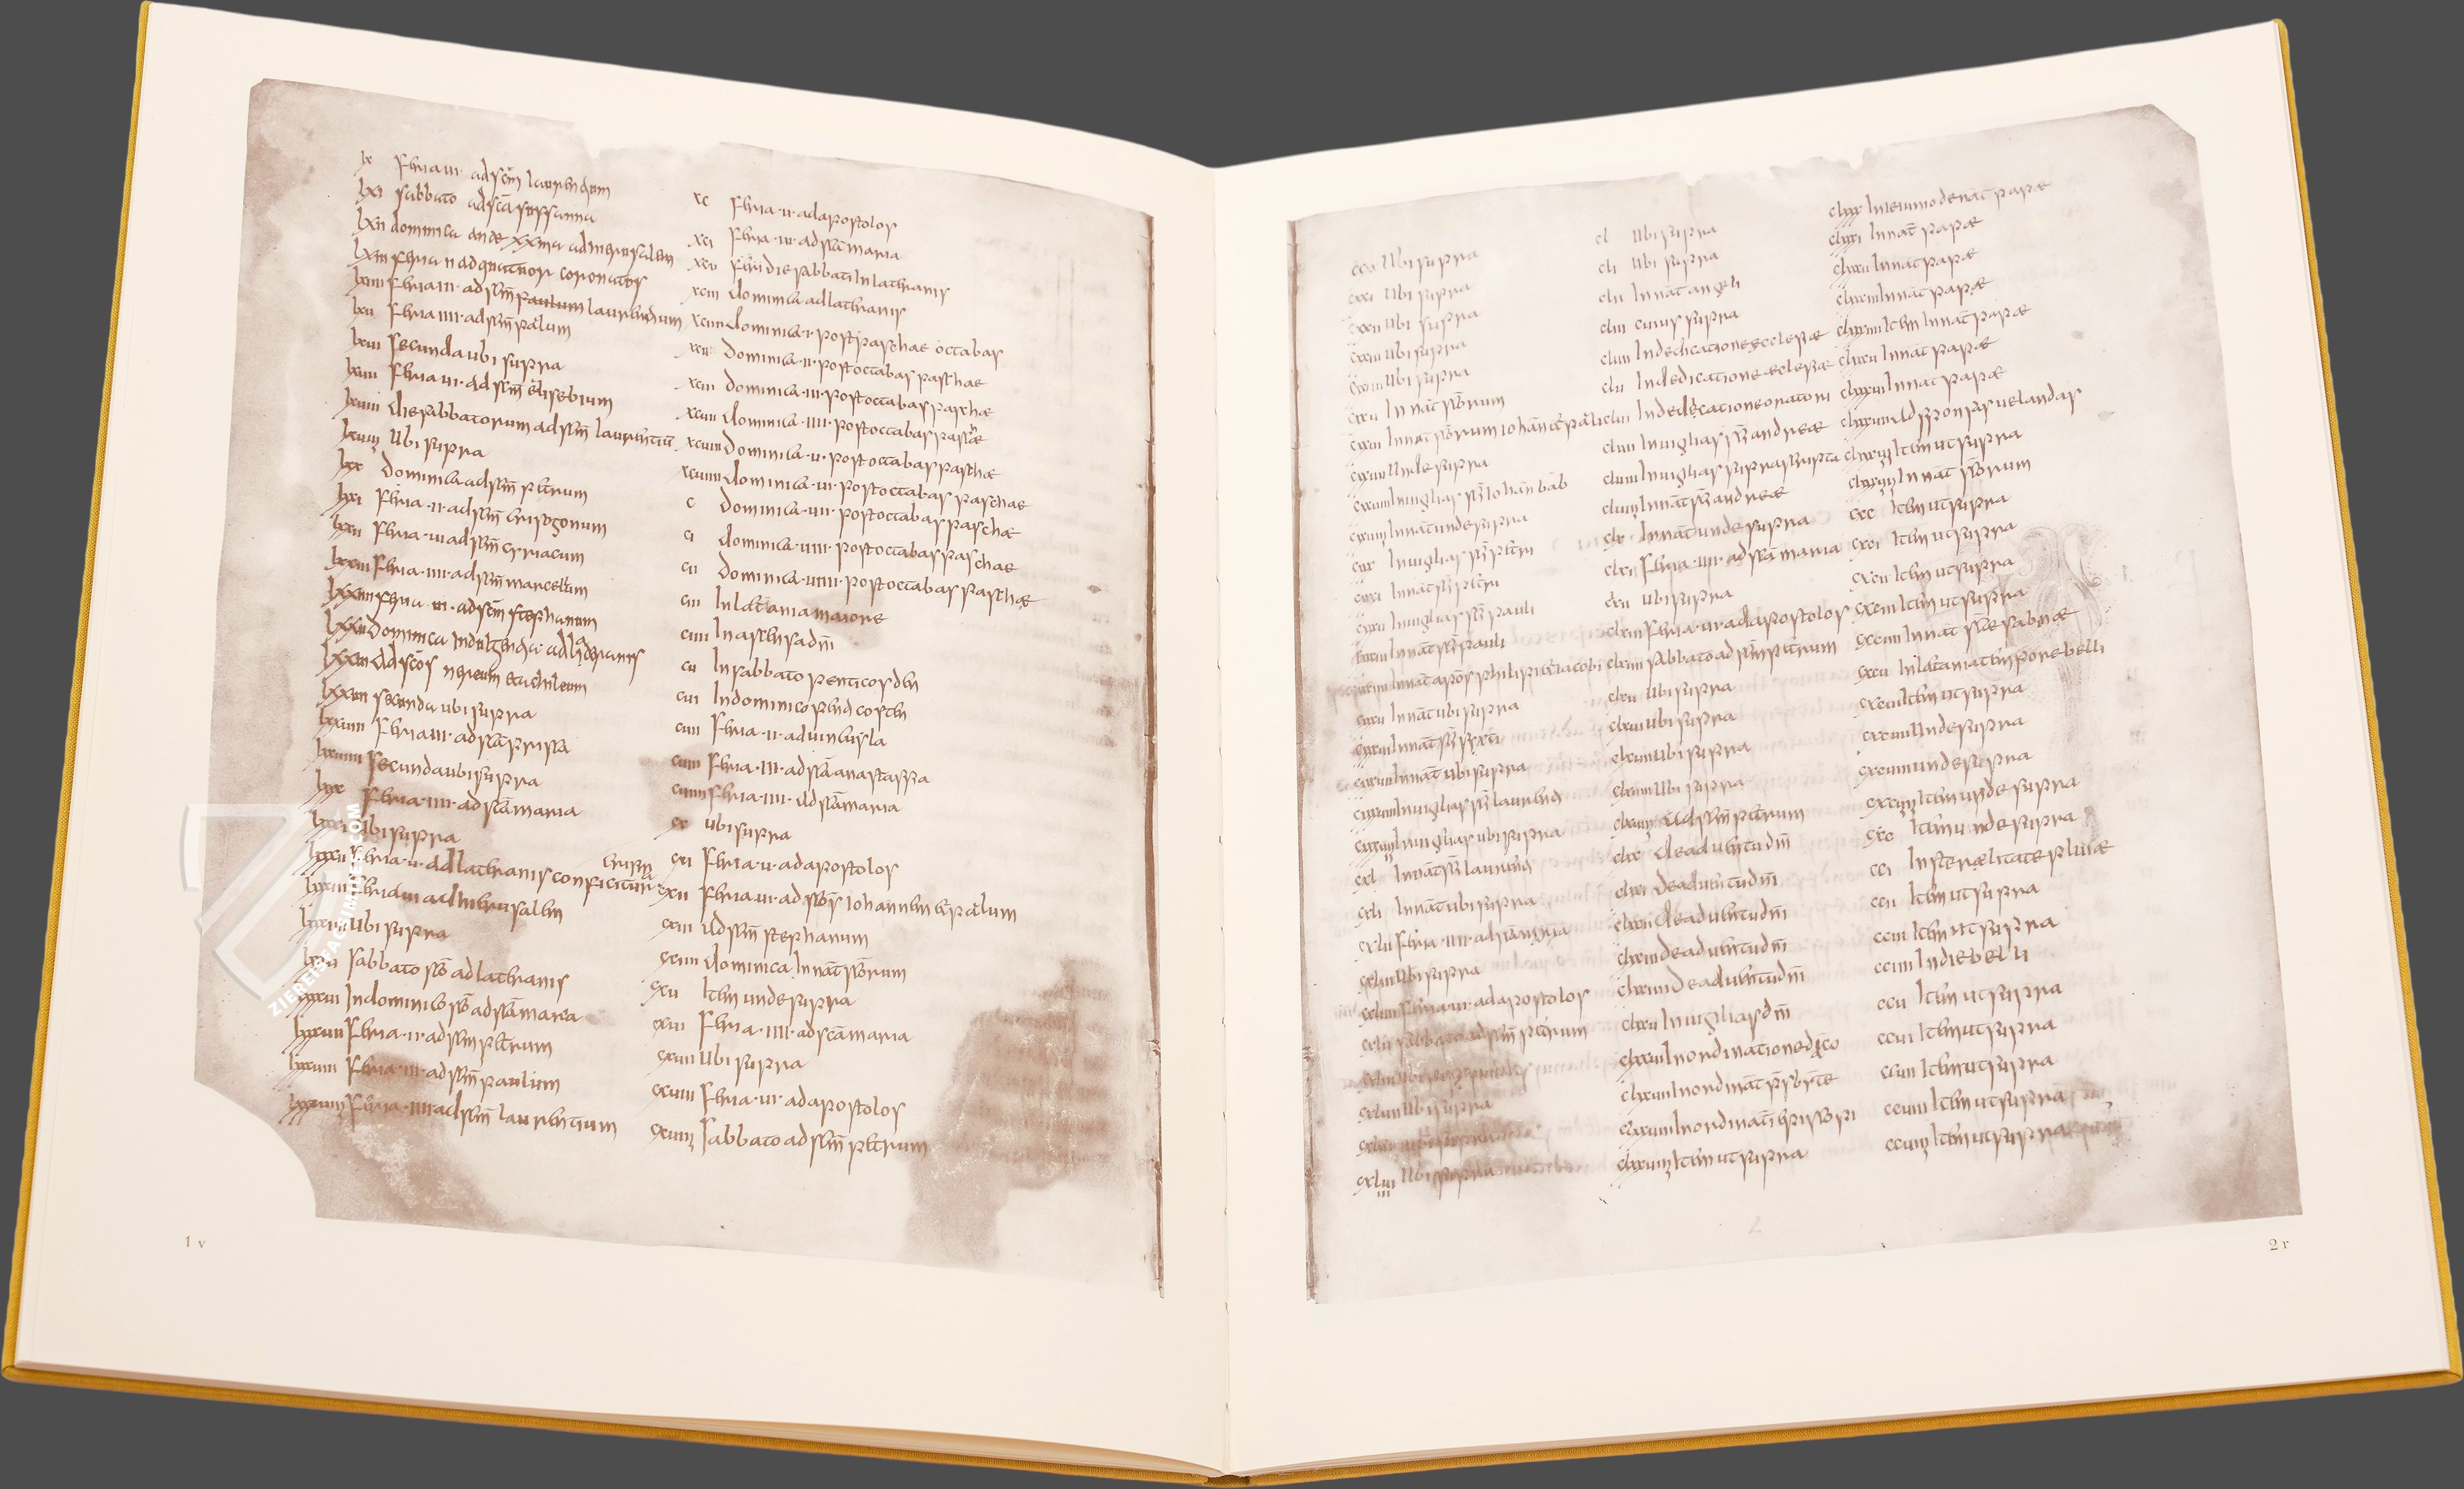 lx feria iii ad scm laurentium
lxi sabbato ad sca sussanna
lxii dominica ante xxma ad hierusalem
lxiii feria ii ad quattuor coronatos
lxiiii feria iii ad scm paulum laurentium
lxv feria iiii ad scm paulum
lxvi secunda ubi supra
lxvii feria vi ad scm eusebium
lxviii die sabbatorum ad scm laurentiu
lxviiii ubi supra
lxx dominica ad scm petrum
lxxi feria ii ad scm crisogonum
lxxii feria iii ad scm cyriacum
lxxiii feria iiii ad scm marcellum
lxxiiii feria vi ad scm stephanum
lxxv dominica indulgentia ad lateranis
lxxvi ad scos nereum
lxxvii secunda ubi supra
lxxviii feria iii ad sca prisca
lxxviiii secunda ubi supra
lxxx feria iiii ad sca maria
lxxxi ubi supra
crisma
lxxxii feria v ad lateranis conficitur
lxxxiii feria vi ad hierusalem
lxxxiiii ubi supra
lxxxv sabbato sco ad lateranis
lxxxvi In dominico sco ad sca maria
lxxxvii feria ii ad scm petrum
lxxxviii feria iii ad scm paulum
lxxxviiii feria iiii ad scm laurentium
xc feria v ad apostolos
xci feria vi ad sca maria
xcii die sabbati In lateranis
xciii dominica ad lateranis
xciiii dominica i post paschae octabas
xcv dominica ii post octabas paschae
xcvi dominica iii post octabas paschae
xcvii dominica iiii post octabas paschae
xcviii dominica v post octabas paschae
xcviiii dominica vi post octabas paschae
c dominica vii post octabas paschae
ci dominica viii post octabas paschae
cii dominica viiii post octabas paschae
ciii In laetania maiore
ciiii In ascensa dni
cv In sabbato penticosten
cvi In dominico penticosten
cvii feria ii ad vincula
cviii feria iii ad sca anastassia
cviiii feria iiii ad sca maria
cx ubi supra
cxi feria v ad apostolos
cxii feria vi ad scos iohannem et paulum
cxiii ad scm stephanum
cxiiii dominica In nat scorum
cxv Item unde supra
cxvi feria iiii ad sca maria
cxvii ubi supra
cxviii feria vi ad apostolos
cxviiii sabbato ad scm petrum
1 v
cxx ubi supra
cxxi ubi supra
cxxii ubi supra
cxxiii ubi supra
cxxiiii ubi supra
cxxv In nat scorum
cxxvi In nat scorum iohan et pauli
cxxvii unde supra
cxxviii In vigilias sci iohan bab
cxxviiii In nat unde supra
cxxx In vigilias sci petri
cxxxi In nat sci petri
cxxxii In vigilias sci pauli
cxxxiii In nat sci pauli
cxxxiiii In nat apos philipi et iacobi
cxxxv In nat ubi supra
cxxxvi In nat sci syxti
cxxxvii In nat ubi supra
cxxxviii In vigilias sci laurenti
cxxxviiii In vigilias ubi supra
cxl In nat sci laurenti
cxli In nat ubi supra
cxlii feria iiii ad sca maria
cxliii ubi supra
cxliiii feria vi ad apostolos
cxlv sabbato ad scm petrum
cxlvii ubi supra
cxlviiii ubi supra
cl ubi supra
cli ubi supra
clii In nat angeli
cliii cuius supra
cliiii In dedicatione ecclesiae
clv In dedicatione ecclesiae
clvi In dedicatione oratori
clvii In vigilias sci andreae
clviii In vigilias suprascripta
clviiii In nat sci andreae
clx In nat unde supra
clxi feria iiii ad sca maria
clxii ubi supra
clxiii feria vi ad apostolos
clxiiii sabbato ad scm petrum
clxv ubi supra
clxvi ubi supra
clxvii ubi supra
clxviii ubi supra
clxviiii ad scm petrum
clxx de adventu dni
clxxi de adventu dni
clxxii de adventu dni
clxxiii de adventu dni
clxxiiii de adventu dni
clxxv In vigilias dni
clxxvi In ordinatione diaco
clxxvii In ordinat presbite
clxxviii In ordinat episcopi
clxxviiii Item ut supra
clxxx In ieiunio de nat papae
clxxxi In nat papae
clxxxii In nat papae
clxxxiii In nat papae
clxxxiiii Item In nat papae
clxxxv In nat papae
clxxxvi In nat papae
clxxxvii ad sponsas velandas
clxxxviii Item ut supra
clxxxviiii In nat scorum
cxc Item ut supra
cxci Item ut supra
cxcii Item ut supra
cxciii Item ut supra
cxciiii In nat scae sabinae
cxcv In laetania tempore belli
cxcvi Item ut supra
cxcvii unde supra
cxcviii unde supra
cxcviiii Item unde supra
cc Item unde supra
cci In sterilitate pluiae
ccii Item ut supra
cciii Item ut supra
cciiii In die belli
ccv Item ut supra
ccvi Item ut supra
ccvii Item ut supra
ccviii Item ut supra
ccviiii Item ut supra
2 r
ZIEREIS FACSIMILES.COM